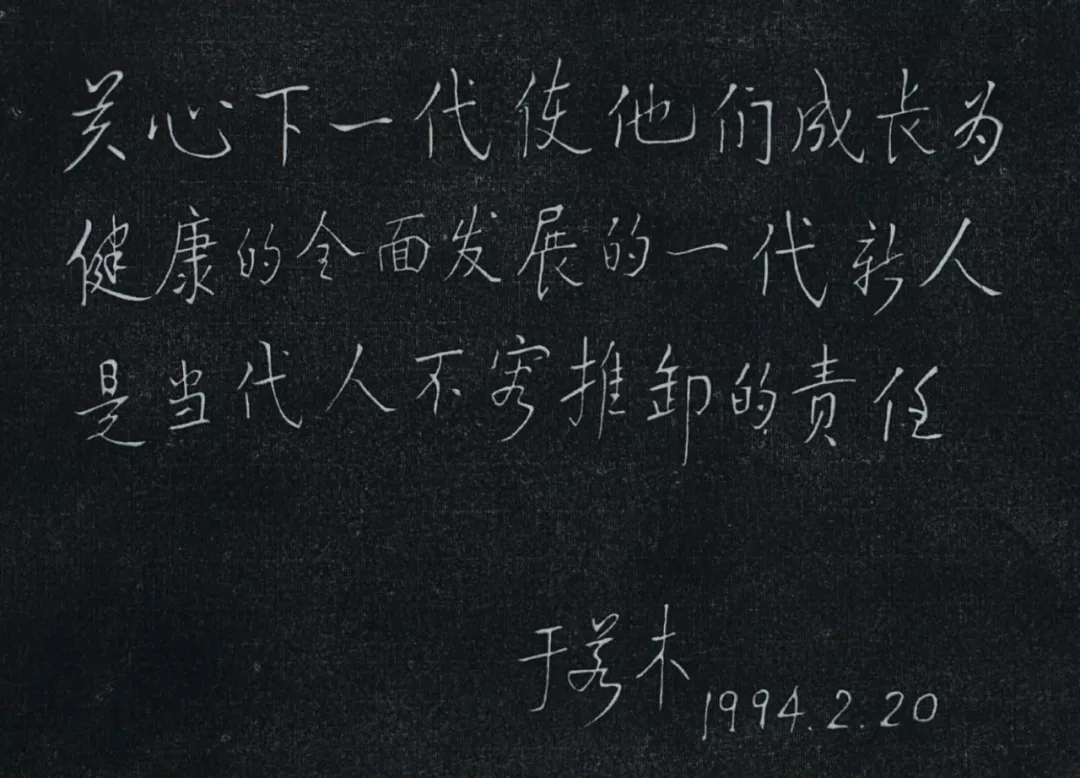 关心下一代使他们成长为
健康的全面发展的一代新人
是当代人不容推卸的责任
于若木 1994.2.20